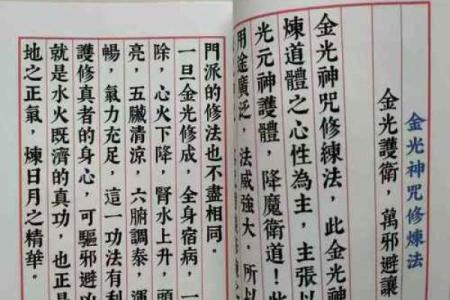 金光神咒修煉法
金光護衛，萬邪避讓
金光神咒修練法，此金光神
煉道體之心性為主，主張以
光元神護體，降魔衛道！此
用途廣泛，法威強大。所以
門派的修法也不盡相同．
一旦金光修成，全身宿病，一
除，心火下降，腎水上升，頭
亮，五臟清涼，六腑調泰，運
暢，氣力充足，這一功法有利
護修真者的身心，可驅邪避凶
就是水火既濟的真功，也正是
地之正氣，煉日月之精華．